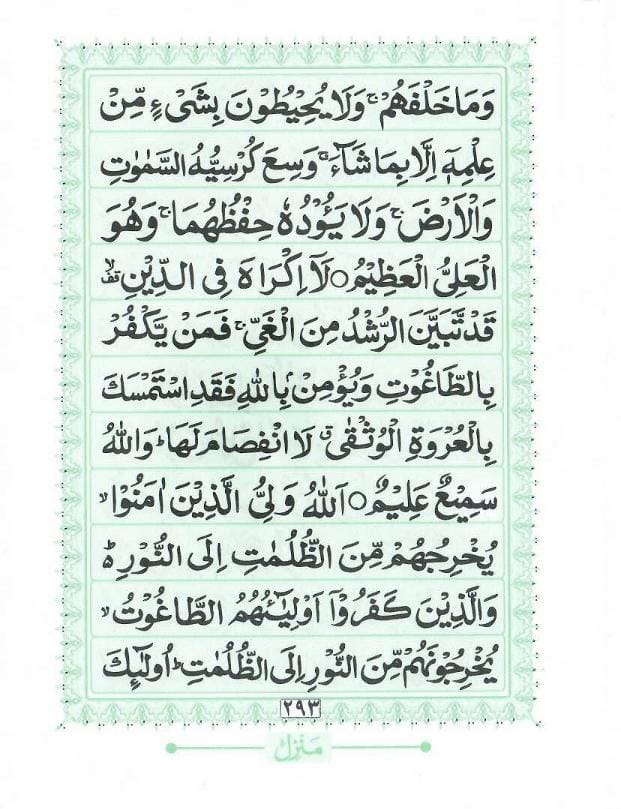 وَمَا خَلْفَهُمْ ۚ وَلَا يُحِيْطُوْنَ بِشَیْءٍ مِّنْ
عِلْمِهٖۤ اِلَّا بِمَا شَآءَ ۚ وَسِعَ كُرْسِيُّهُ السَّمٰوٰتِ
وَالْاَرْضَ ۚ وَلَا يَـُٔوْدُهٗ حِفْظُهُمَا ۚ وَهُوَ
الْعَلِیُّ الْعَظِيْمُ ○ لَاۤ اِكْرَاهَ فِی الدِّيْنِ ۙ قف
قَدْ تَّبَيَّنَ الرُّشْدُ مِنَ الْغَیِّ ۚ فَمَنْ يَّكْفُرْ
بِالطَّاغُوْتِ وَيُؤْمِنْۢ بِاللّٰهِ فَقَدِ اسْتَمْسَكَ
بِالْعُرْوَةِ الْوُثْقٰی ۗ لَا انْفِصَامَ لَهَا ؕ وَاللّٰهُ
سَمِيْعٌ عَلِيْمٌ ○ اَللّٰهُ وَلِیُّ الَّذِيْنَ اٰمَنُوْا ۙ
يُخْرِجُهُمْ مِّنَ الظُّلُمٰتِ اِلَی النُّوْرِ ؕ۬
وَالَّذِيْنَ كَفَرُوْۤا اَوْلِيٰٓـُٔهُمُ الطَّاغُوْتُ ۙ
يُخْرِجُوْنَهُمْ مِّنَ النُّوْرِ اِلَی الظُّلُمٰتِ ؕ اُولٰٓئِكَ
٢٩٣
مَنْزِل